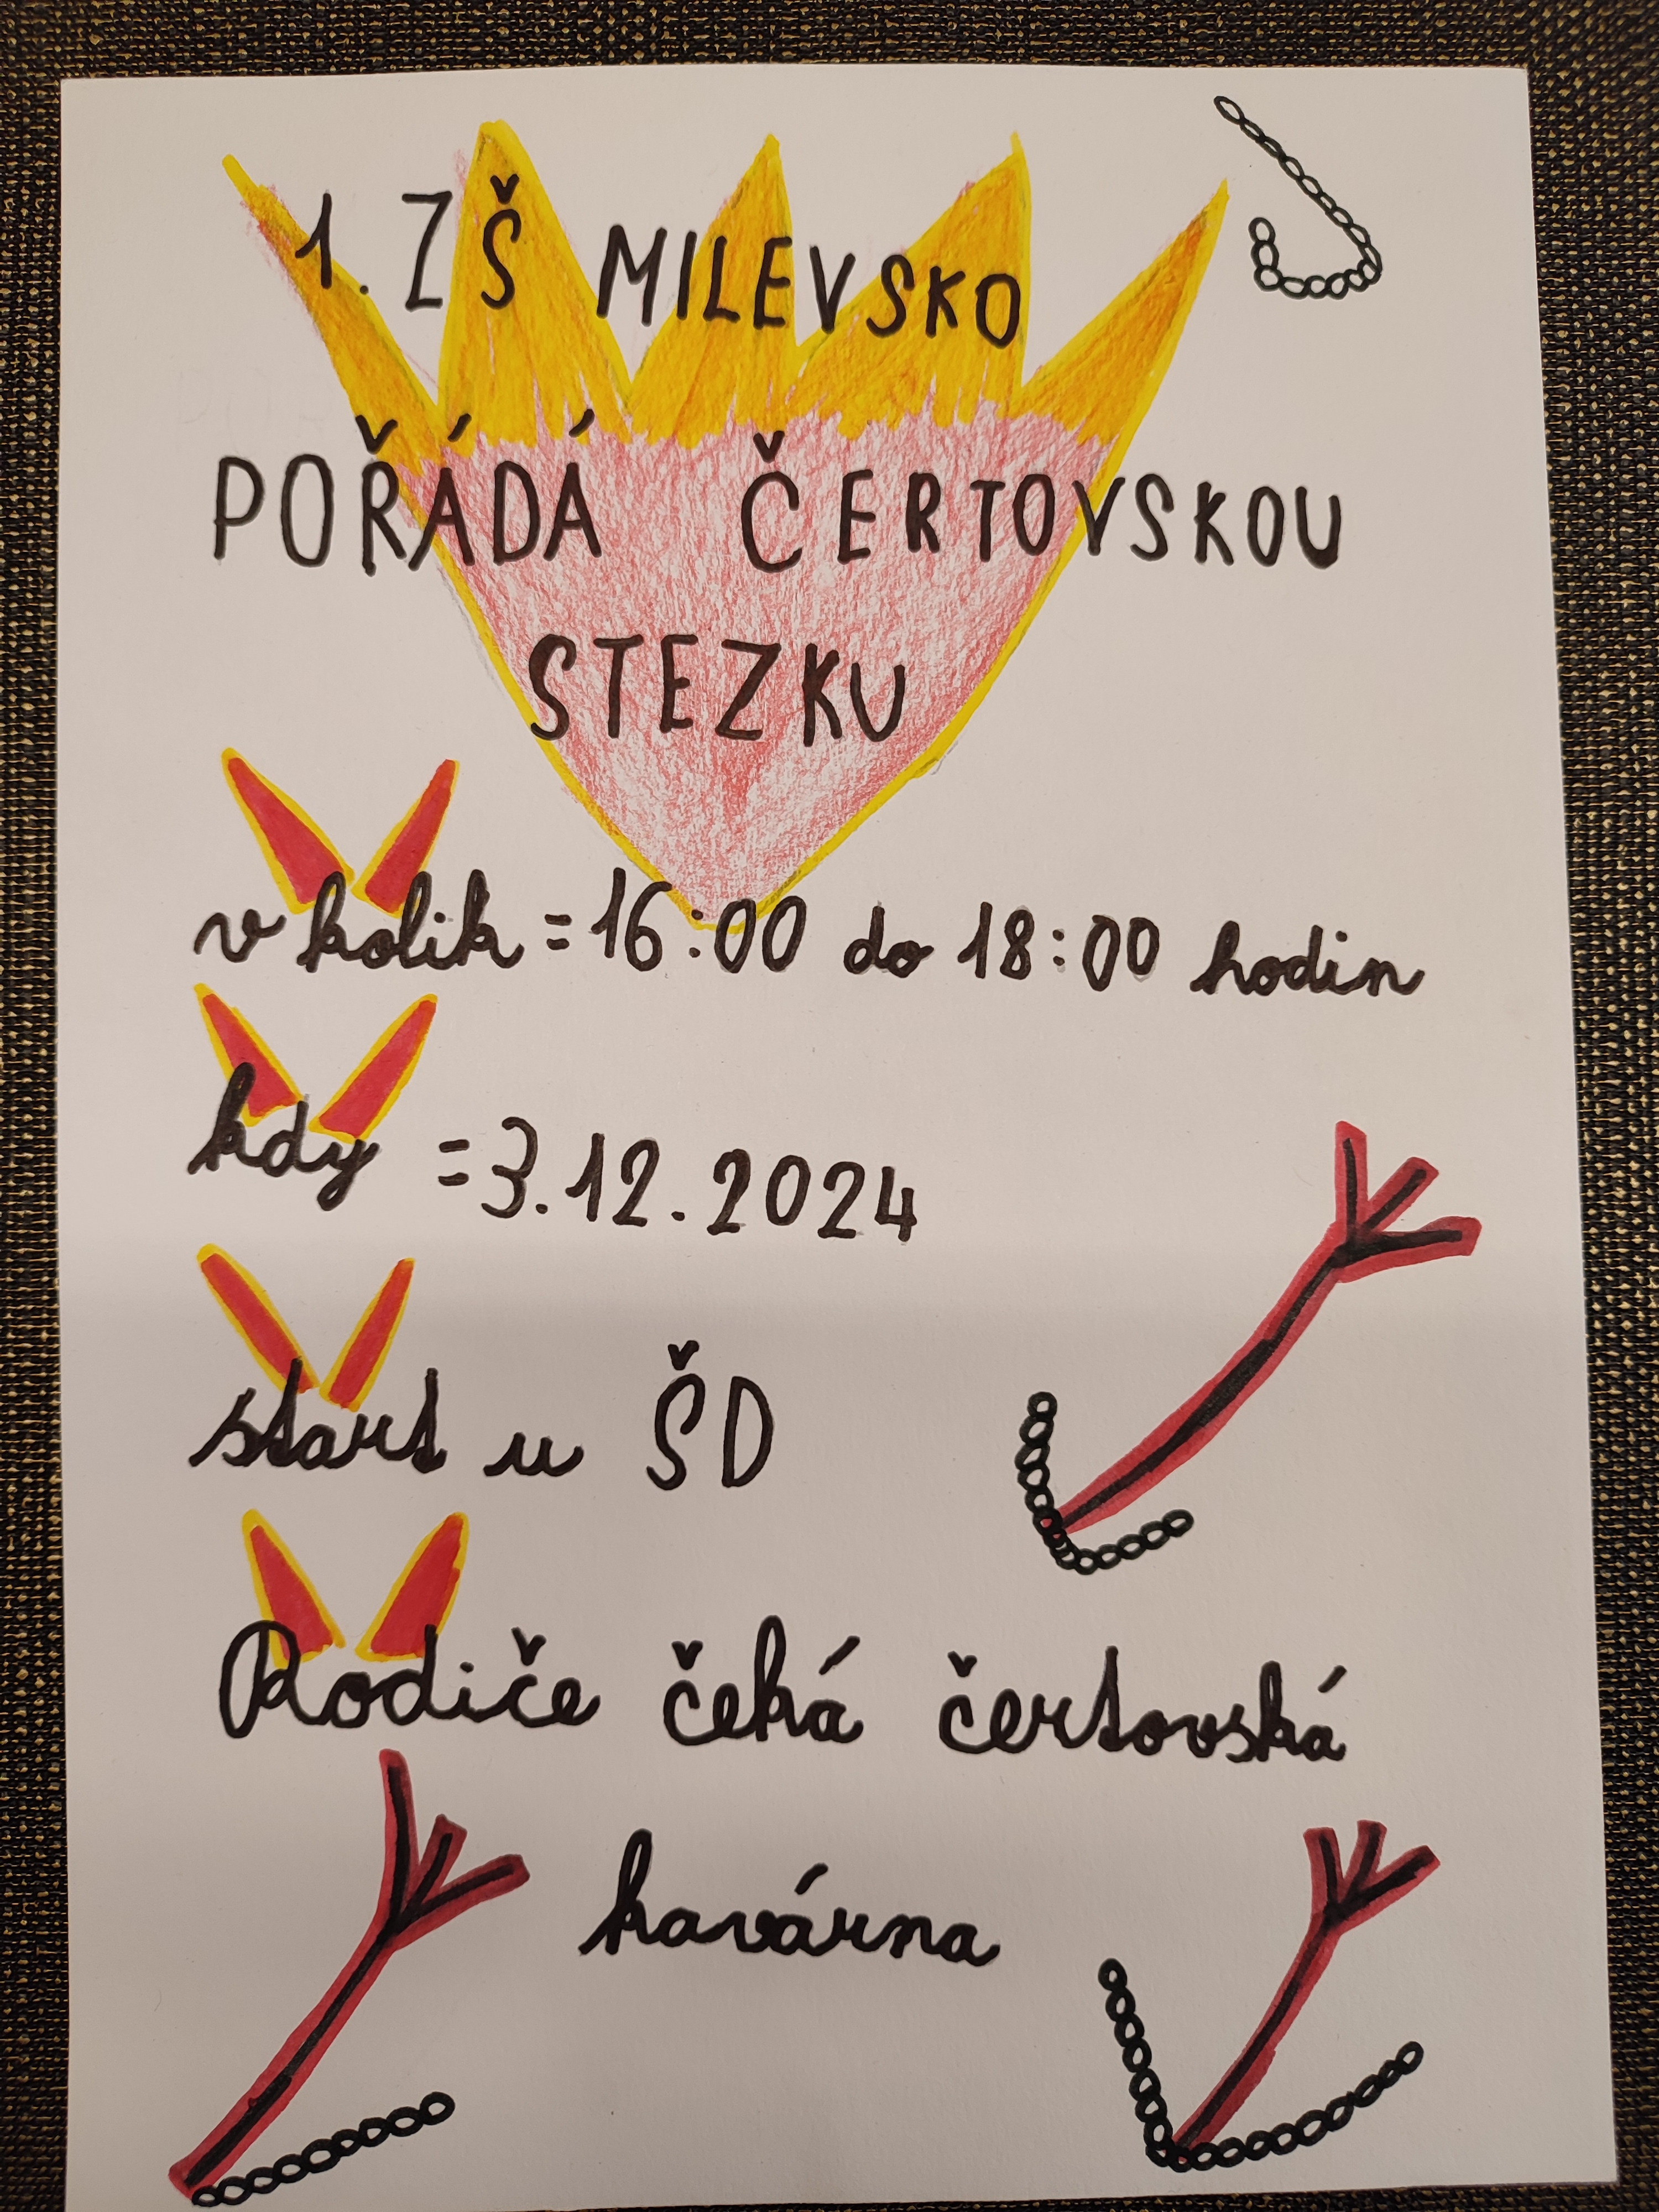 1. ZŠ MILEVSKO
POŘÁDÁ ČERTOVSKOU
STEZKU
v kolik = 16:00 do 18:00 hodin
kdy = 3.12.2024
start u ŠD
Rodiče čeká čertovská
kavárna